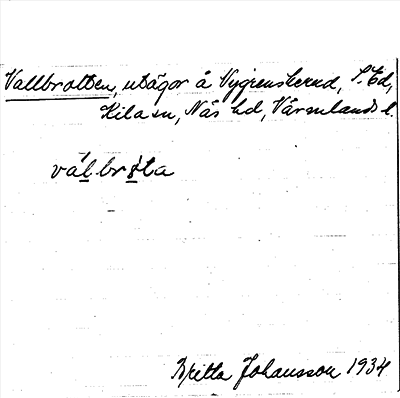 Vallbrotten, utägor å Nygrenskerud, S. Ed,
Kila sn, Näs hd, Värmlands l.
válbrŏ́ta
Britta Johansson 1934